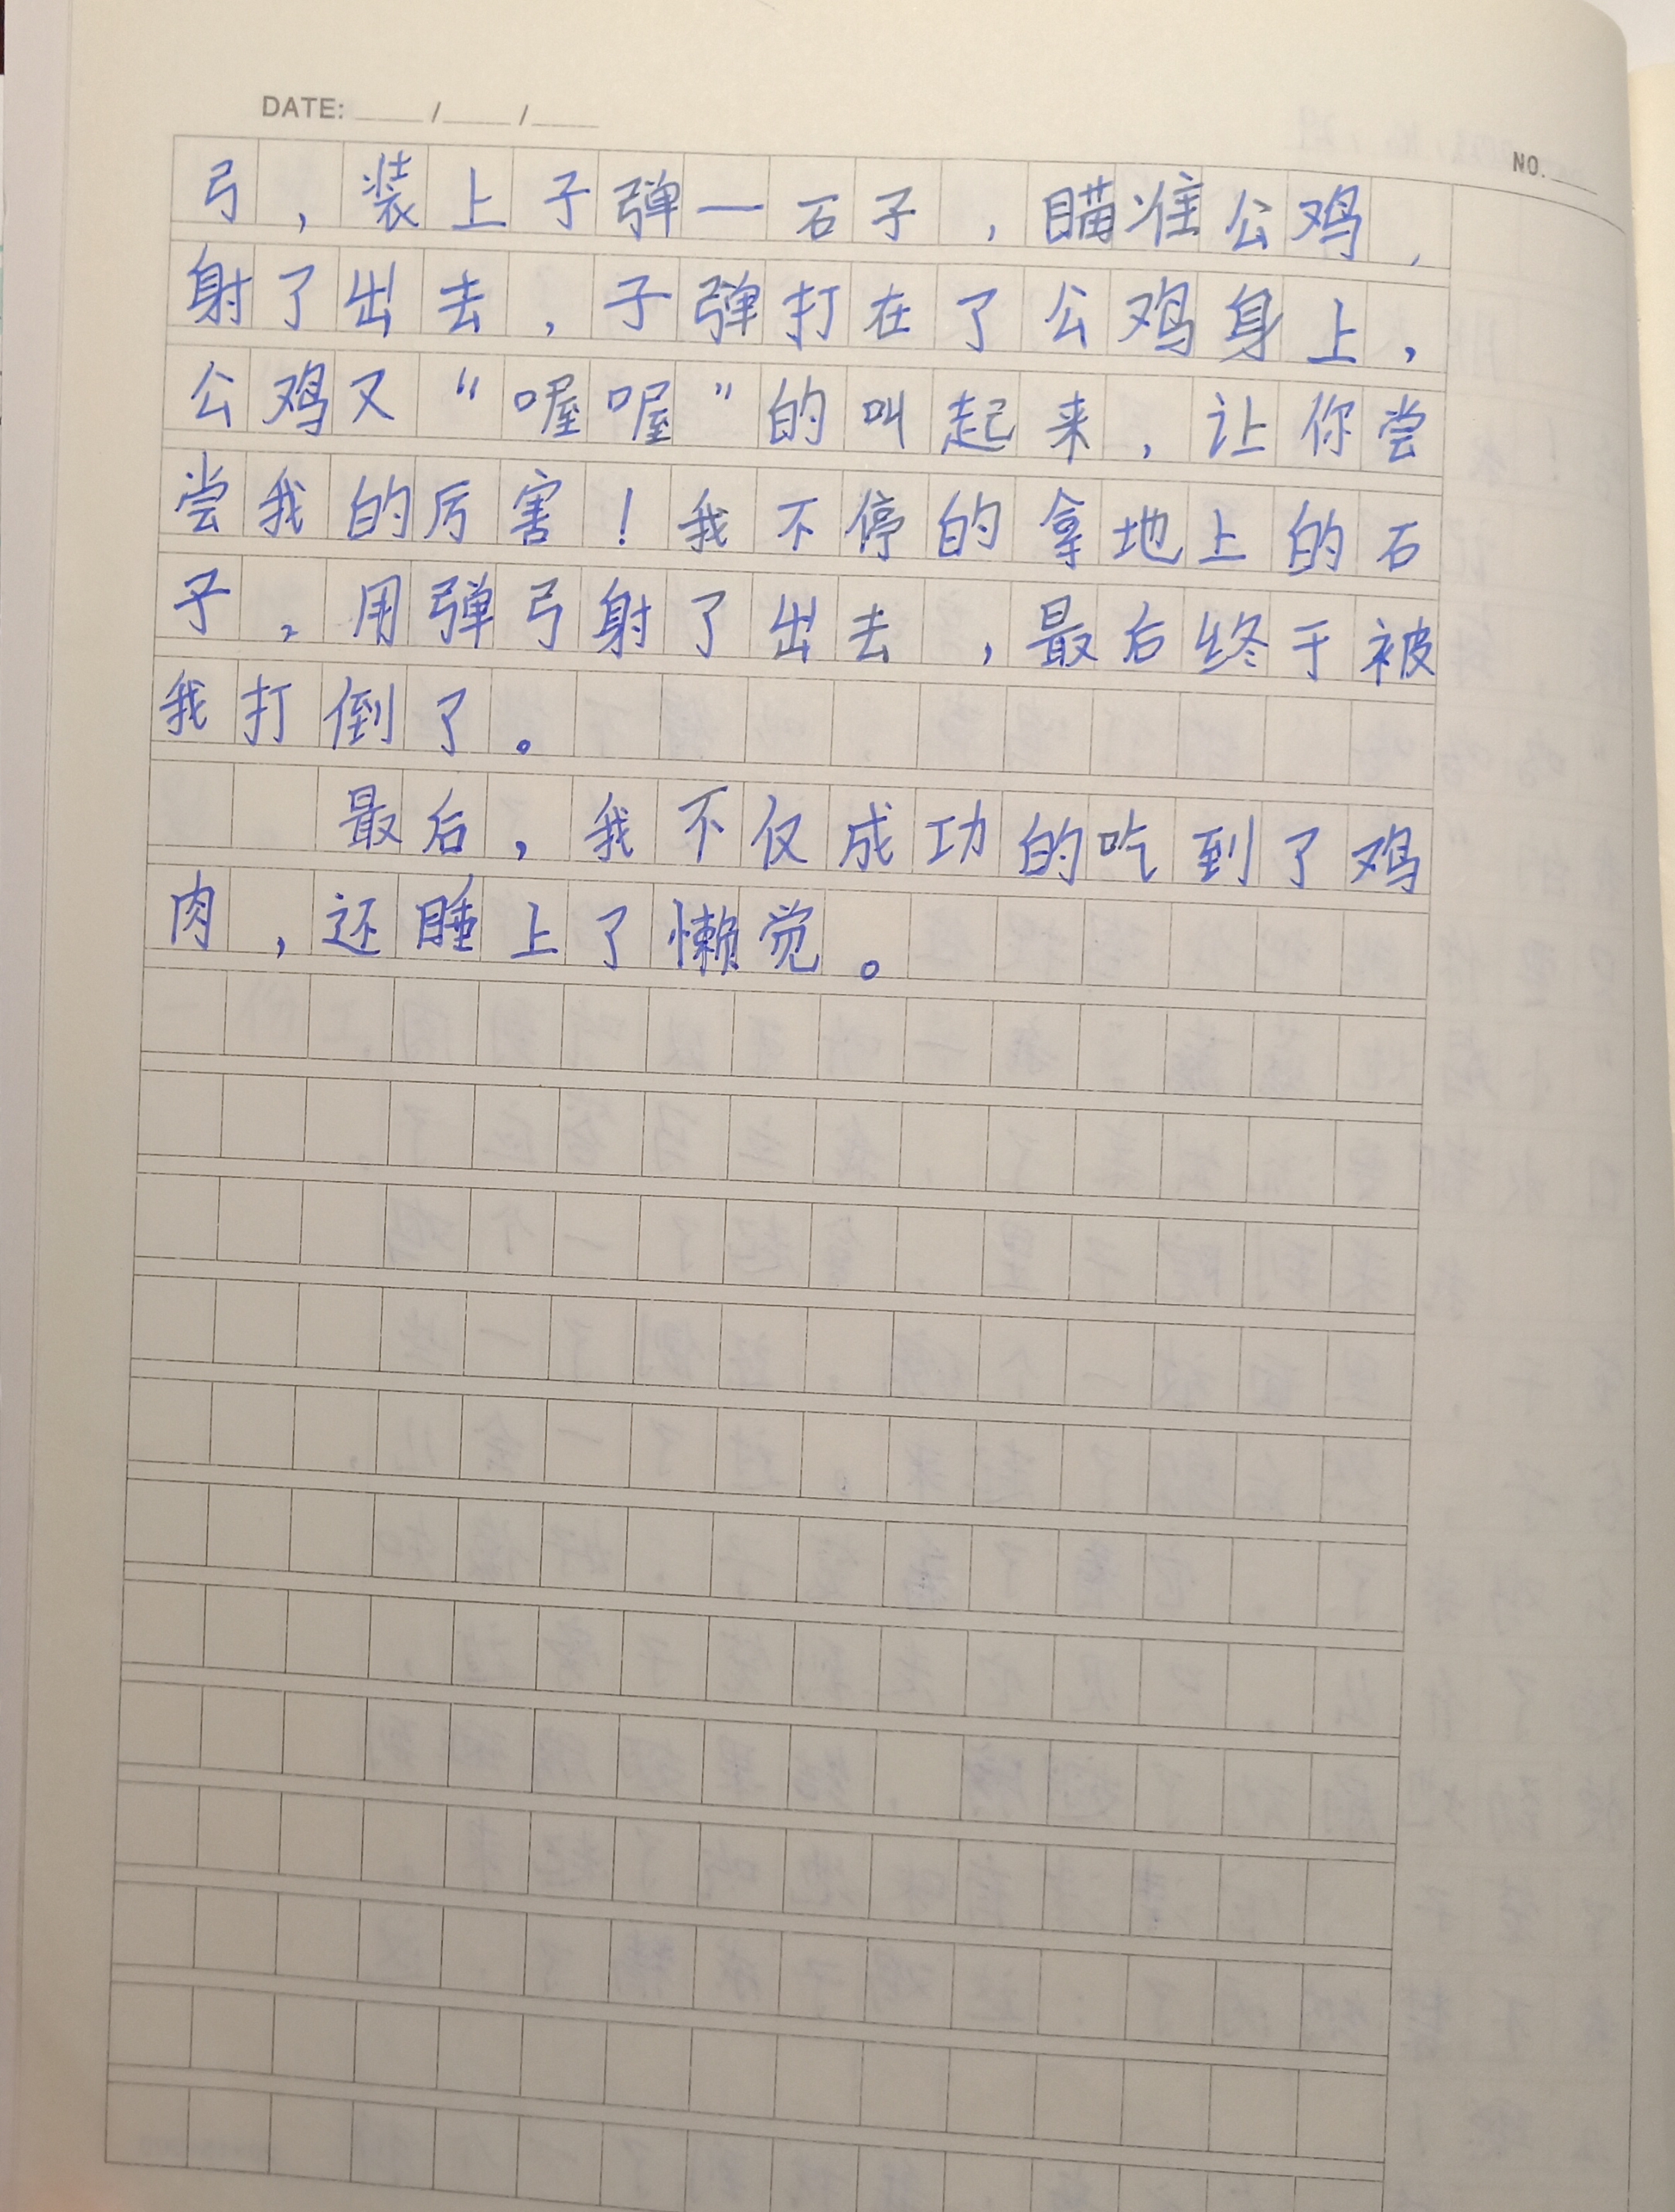 DATE: ____/____/____
NO.____
弓，装上子弹一石子，瞄准公鸡，
射了出去，子弹打在了公鸡身上，
公鸡又“喔喔”的叫起来，让你尝
尝我的厉害！我不停的拿地上的石
子，用弹弓射了出去，最后终于被
我打倒了。
最后，我不仅成功的吃到了鸡
肉，还睡上了懒觉。